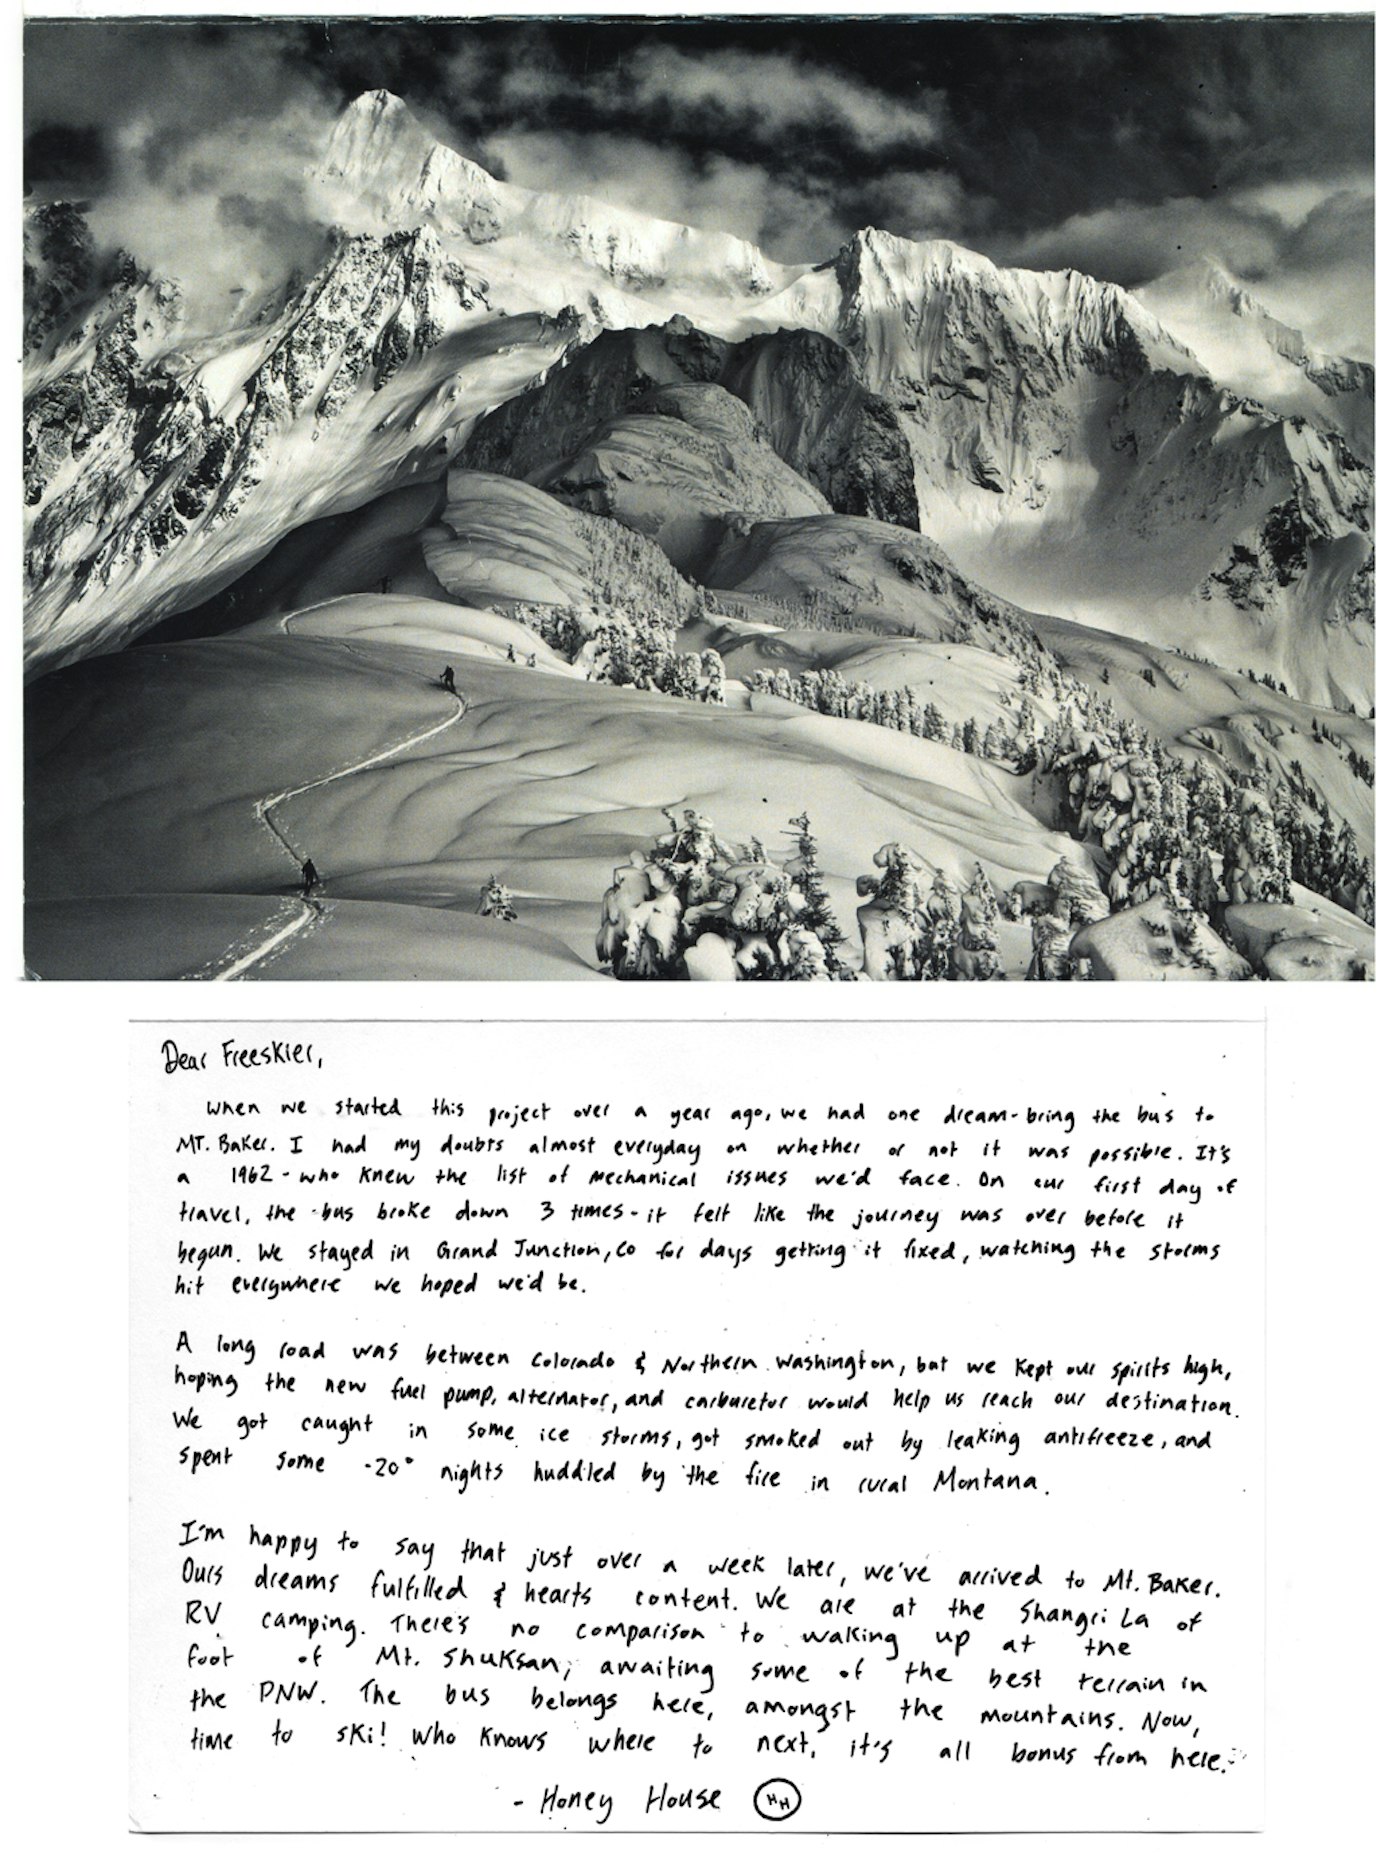 Dear Freeskier,
When we started this project over a year ago, we had one dream - bring the bus to
MT. Baker. I had my doubts almost everyday on whether or not it was possible. It's
a 1962 - who knew the list of mechanical issues we'd face. On our first day of
travel, the bus broke down 3 times - it felt like the journey was over before it
begun. We stayed in Grand Junction, CO for days getting it fixed, watching the storms
hit everywhere we hoped we'd be.
A long road was between Colorado & Northern Washington, but we kept our spirits high,
hoping the new fuel pump, alternator, and carburetor would help us reach our destination.
We got caught in some ice storms, got smoked out by leaking antifreeze, and
spent some -20° nights huddled by the fire in rural Montana.
I'm happy to say that just over a week later, we've arrived to Mt. Baker.
Ours dreams fulfilled & hearts content. We are at the Shangri La of
RV camping. There's no comparison to waking up at the
foot of Mt. Shuksan, awaiting some of the best terrain in
the PNW. The bus belongs here, amongst the mountains. Now,
time to ski! Who knows where to next, it's all bonus from here.
- Honey House HH